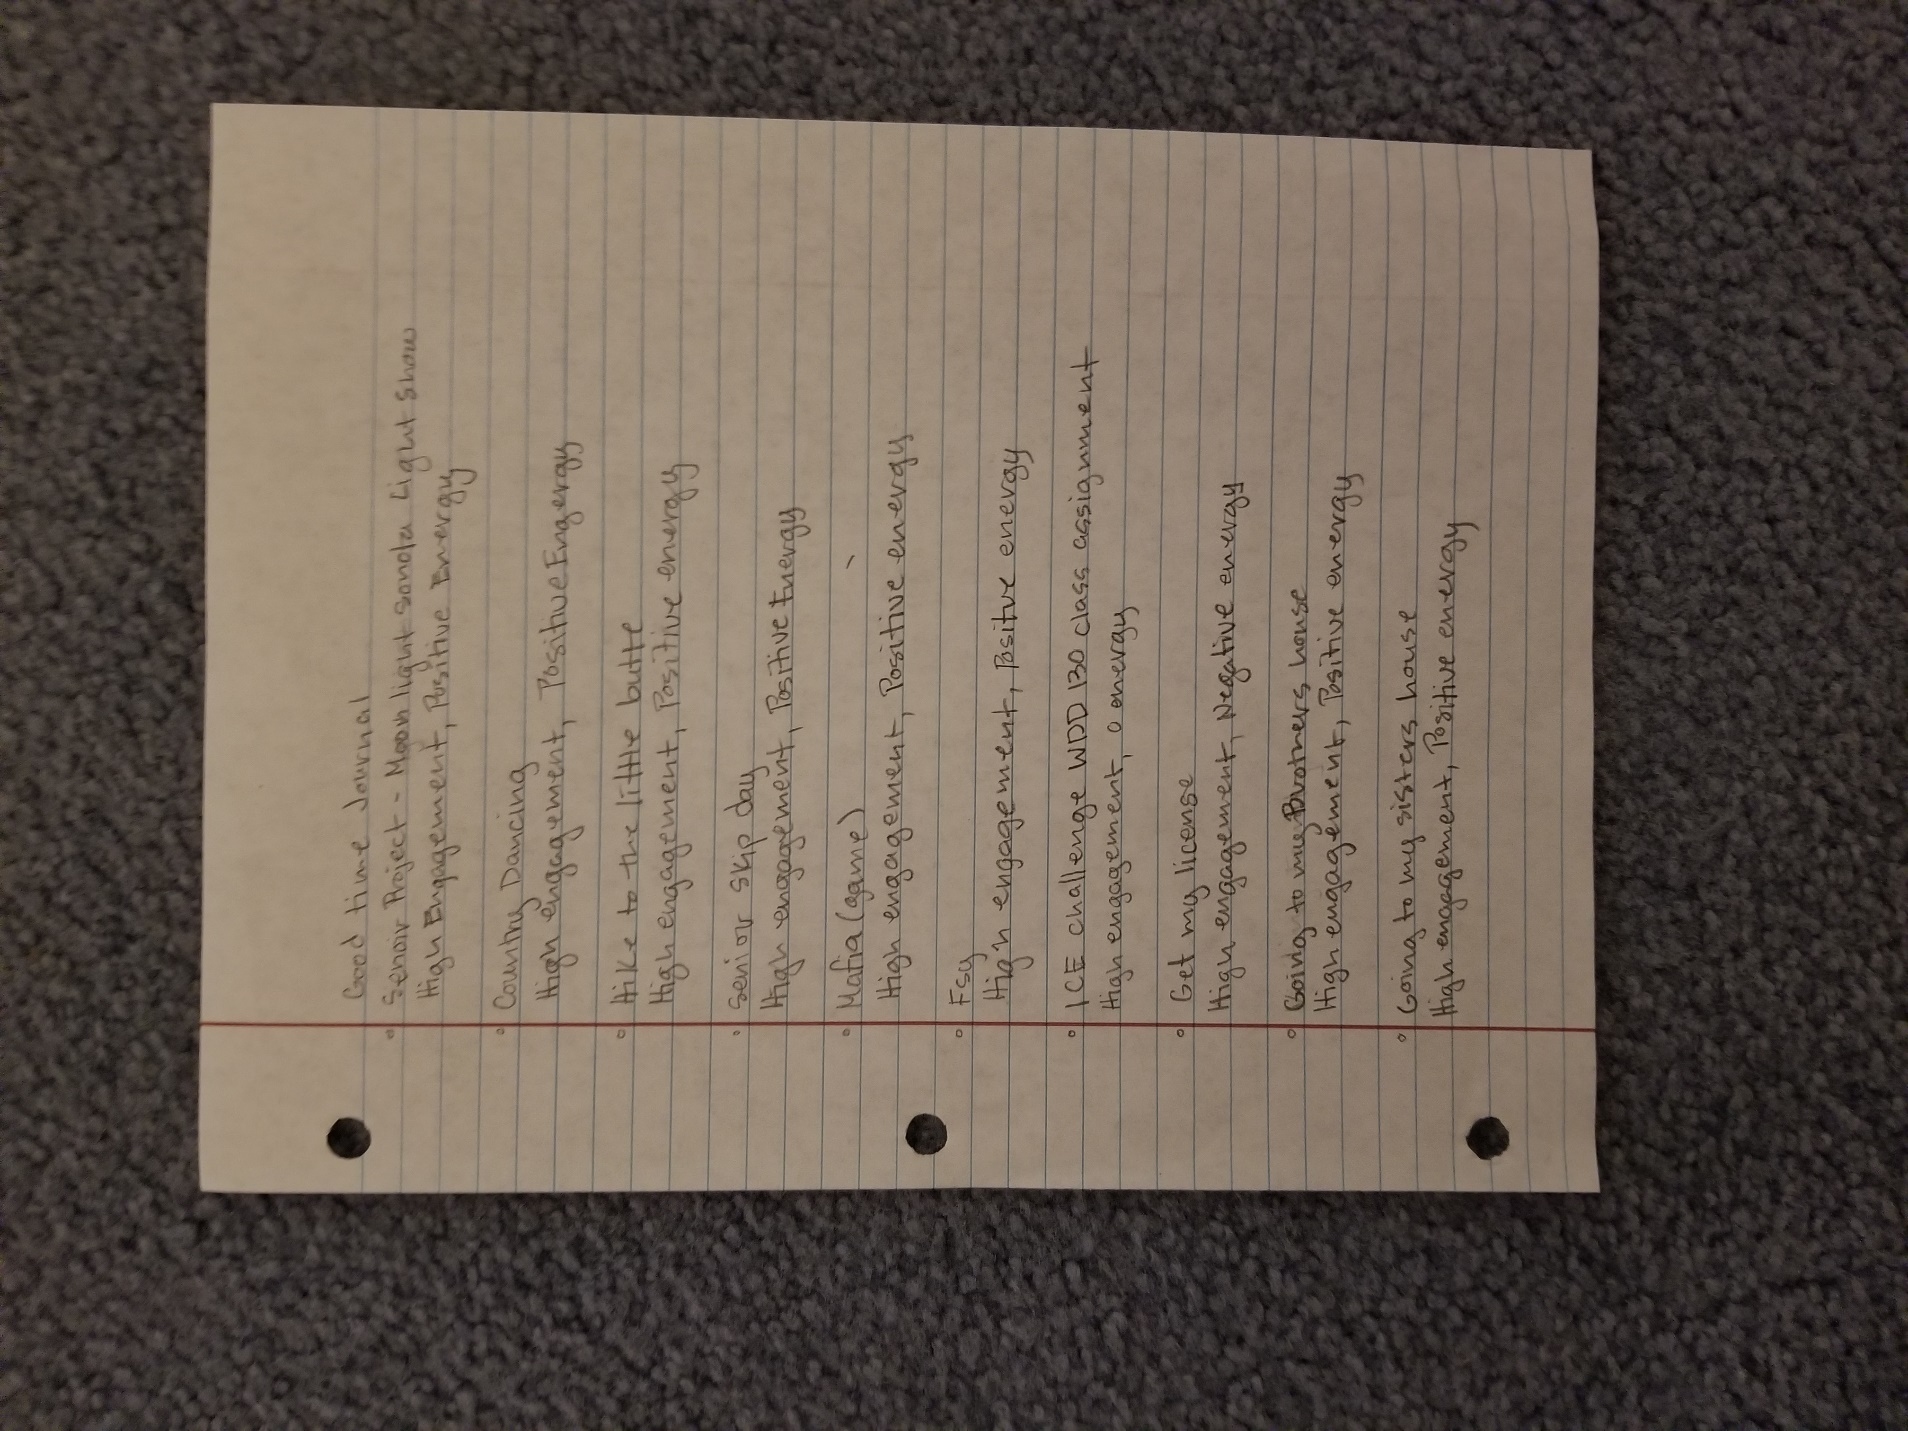 Good time Journal
° Senoir Project - Moonlight sonola Light show
High Engagement, Positive Energy
° Country Dancing
High engagement, Positive Engergy
° Hike to the little butte
High engagement, Positive energy
° Senior skip day
High engagement, Positive Energy
° Mafia (game)
High engagement, Positive energy
° Fsy
High engagement, Positve energy
° ICE challenge WDD 130 class assignment
High engagement, 0 energy
° Get my license
High engagement, Negative energy
° Going to my Brothers house
High engagement, Positive energy
° Going to my sisters house
High engagement, Positive energy